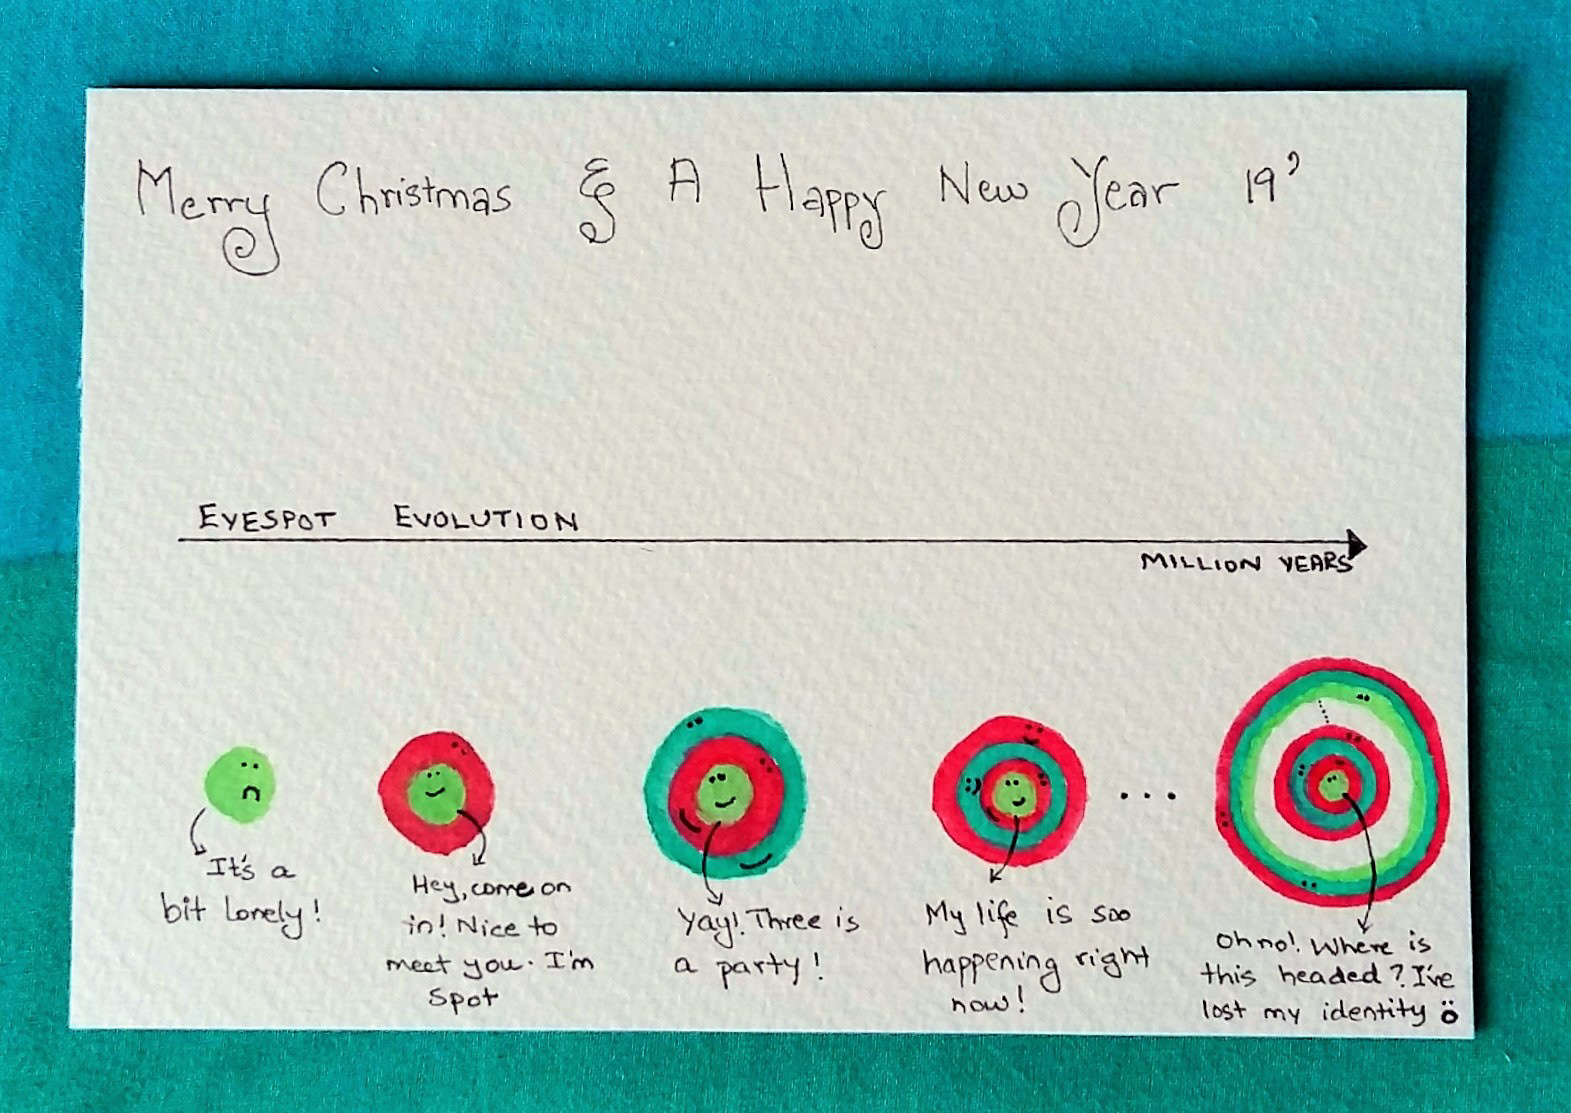 Merry Christmas & A Happy New Year 19'
EYESPOT EVOLUTION
MILLION YEARS
It's a
bit lonely!
Hey, come on
in! Nice to
meet you. I'm
Spot
Yay! Three is
a party!
My life is soo
happening right
now!
...
Oh no! Where is
this headed? I've
lost my identity